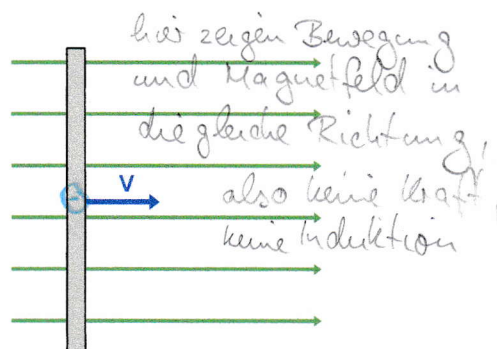 hier zeigen Bewegung
und Magnetfeld in
die gleiche Richtung,
v
also keine Kraft,
keine Induktion